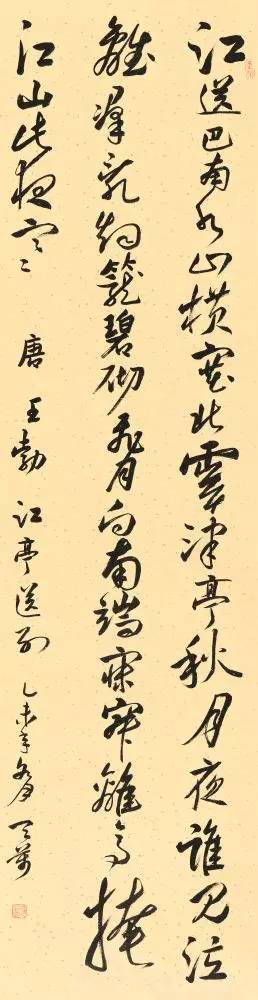 江送巴南水山横塞北雲津亭秋月夜誰見泣
離群亂烟籠碧砌飛月向南端寂寂離亭掩
江山此夜寒 唐 王勃 江亭送别 乙未年